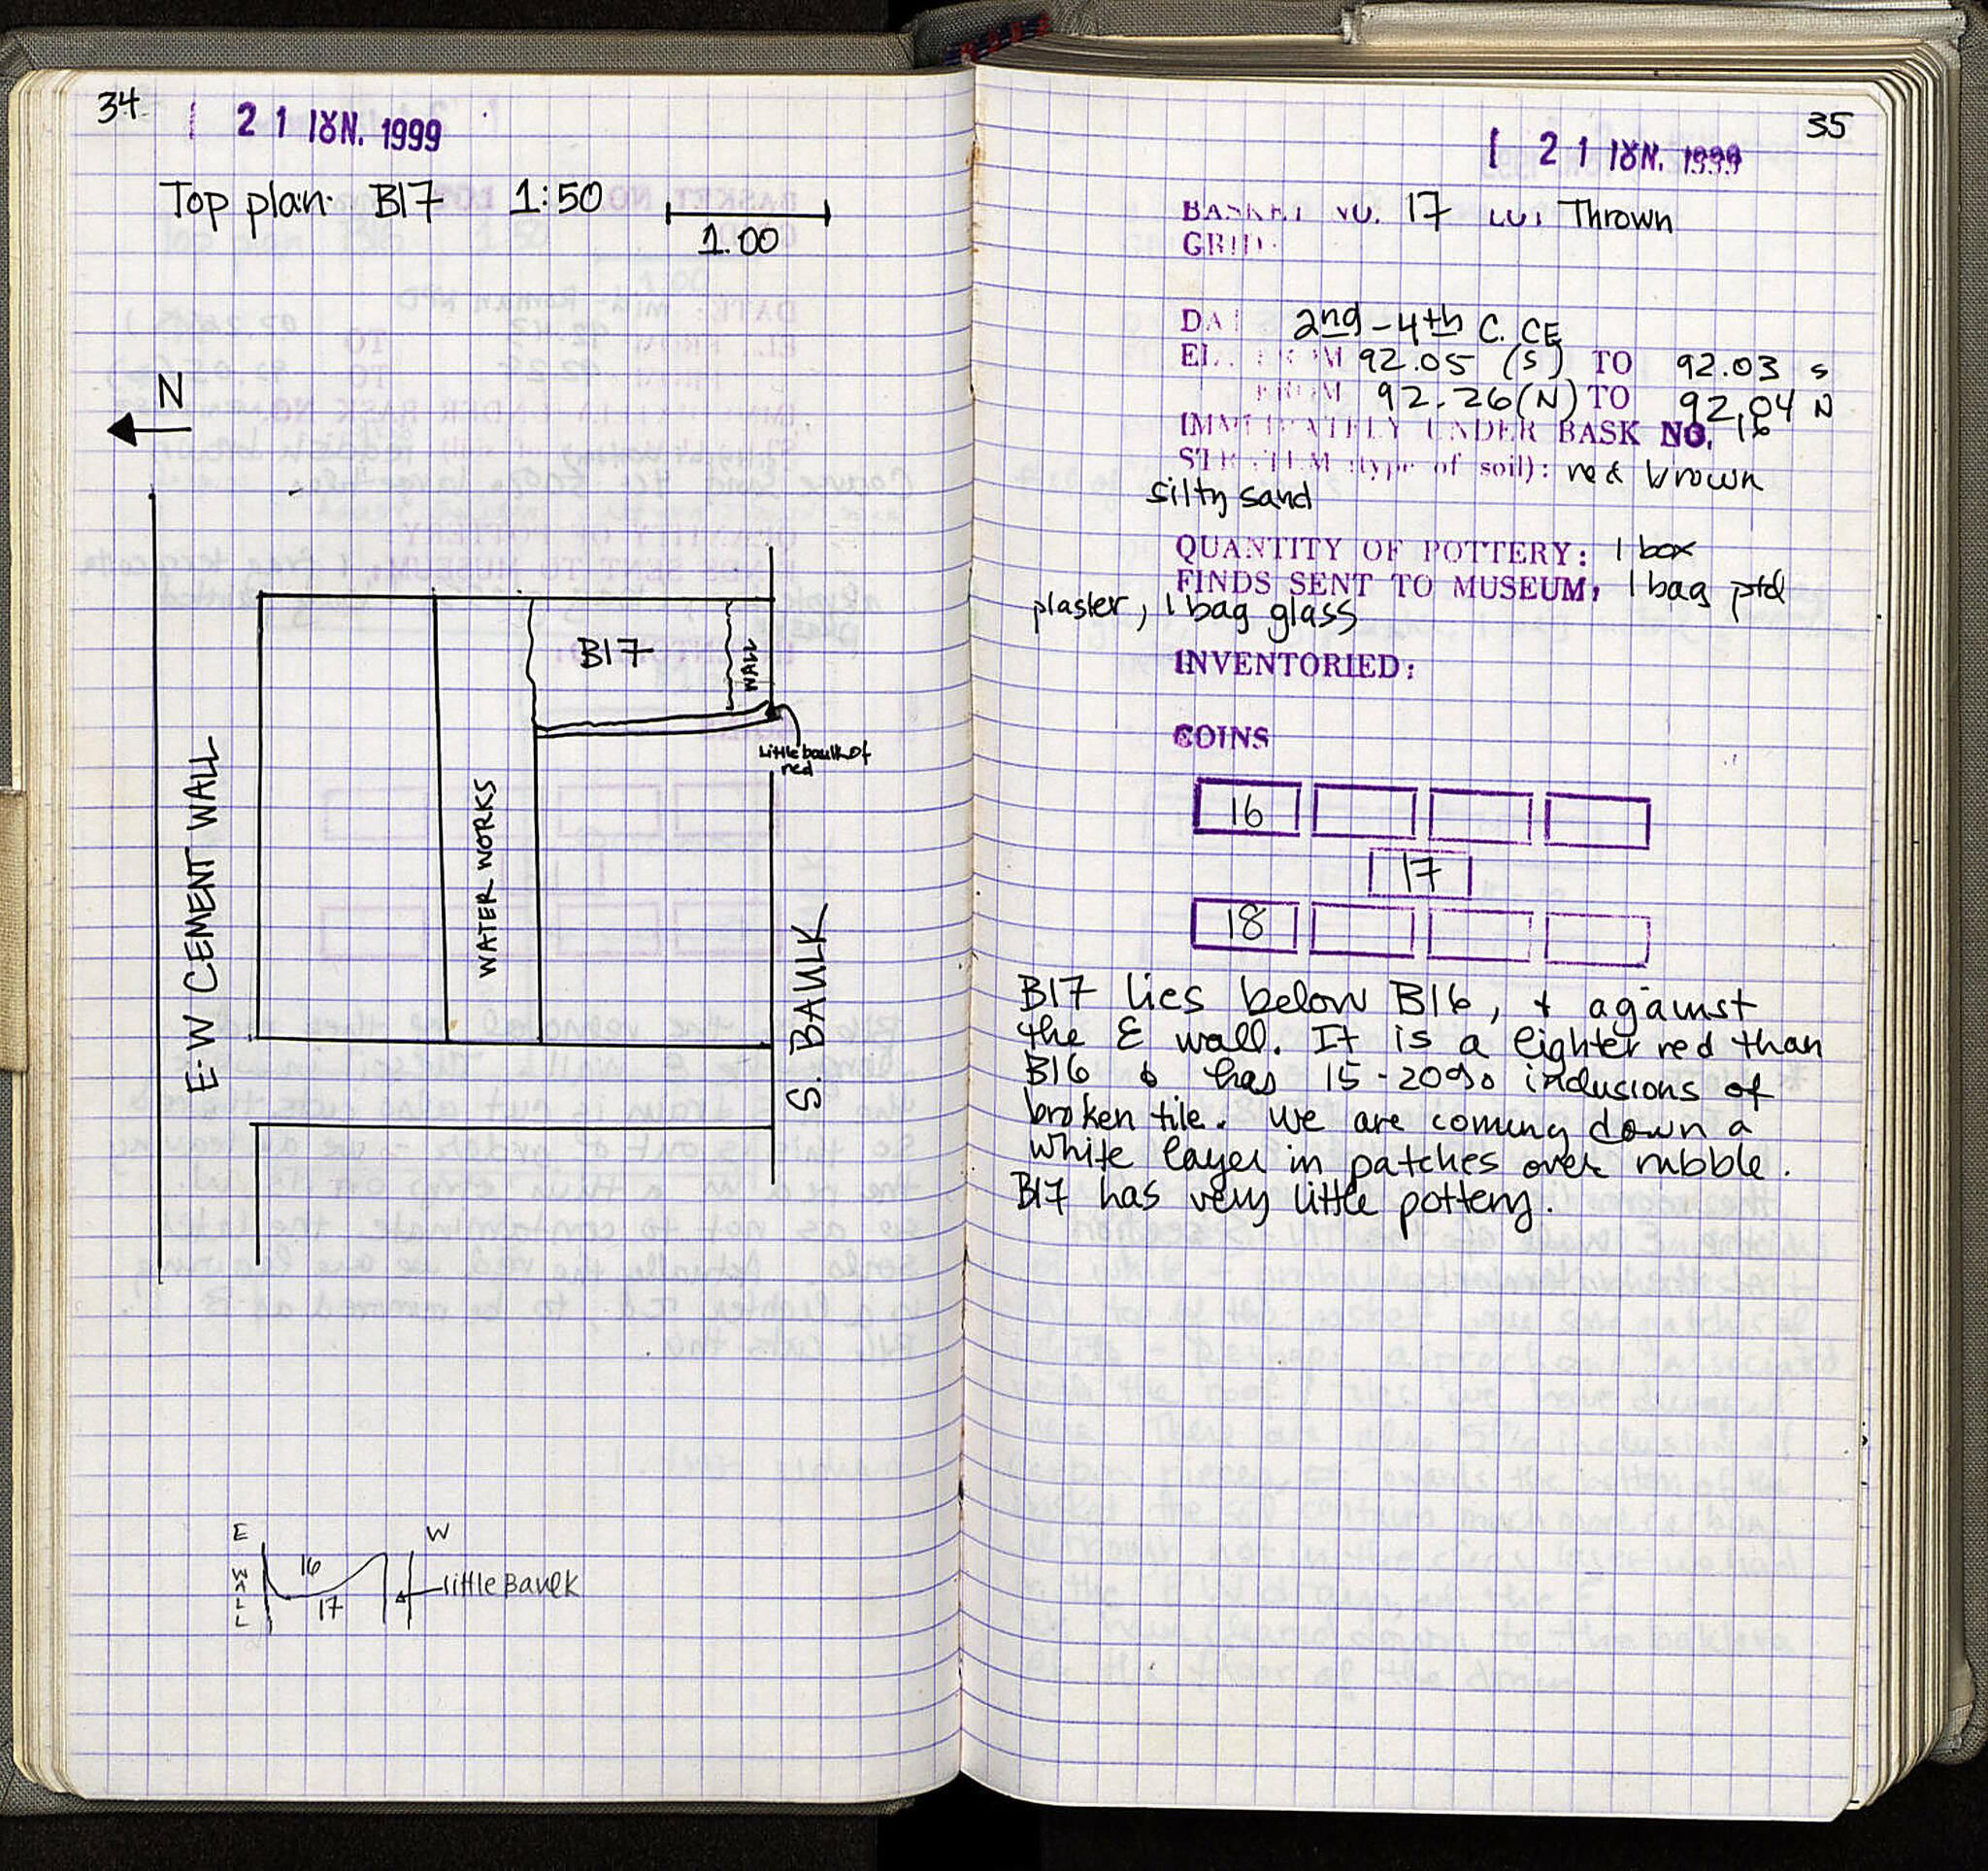 34
21 ΙΟΥΝ. 1999
Top plan. B17 1:50
1.00
N
E-W CEMENT WALL
WATER WORKS
B17
WALL
Little baulk of
red
S. BAULK
E W
WALL
16
17
little Baulk
35
21 ΙΟΥΝ. 1999
BASKET NO. 17 LOT Thrown
GRID:
2nd-4th C. CE
EL. FROM 92.05 (S) TO 92.03 S
FROM 92.26(N) TO 92.04 N
IMMEDIATELY UNDER BASK NO. 16
STRATUM (type of soil): red brown
silty sand
QUANTITY OF POTTERY: 1 box
FINDS SENT TO MUSEUM: 1 bag ptd
plaster, 1 bag glass
INVENTORIED:
COINS
16
17
18
B17 lies below B16, + against
the E wall. It is a lighter red than
B16 & has 15-20% inclusions of
broken tile. We are coming down a
white layer in patches over rubble.
B17 has very little pottery.